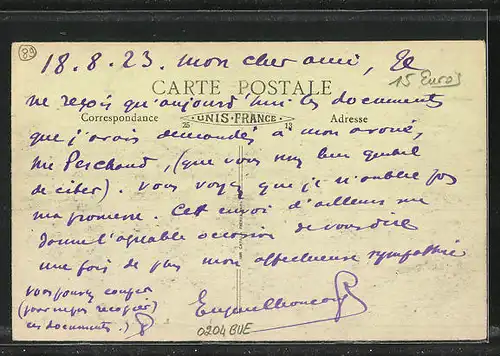 89
18.8.23. mon cher ami, Je
15 Euros
CARTE POSTALE
ne reçois qu'aujourd'hui les documents
Correspondance UNIS-FRANCE Adresse
25 13
que j'avais demandés à mon avoué,
Me Perchaud, (que vous
de citer). Vous voyez que je n'oublie pas
ma promesse. Cet envoi d'ailleurs me
donne l'agréable occasion de vous dire
une fois de plus mon affectueuse sympathie
Vous pouvez
ces documents.)
0204BUE